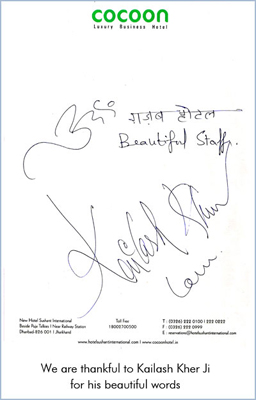 cocoon
Luxury Business Hotel
ॐ
ग़ज़ब होटल
Beautiful Staff.
Kailash Kher
Love.
New Hotel Sushant International
Bonde Raja Talkies I Near Railway Station
Dhanbad 826 001 I Jharkhand
Toll Free
18002700500
T : (0326) 222 0100 I 222 0822
F : (0326) 222 0999
E : reservations@hotelsushantinternational.com
www.hotelsushantinternational.com I www.cocoonhotel.in
We are thankful to Kailash Kher Ji
for his beautiful words